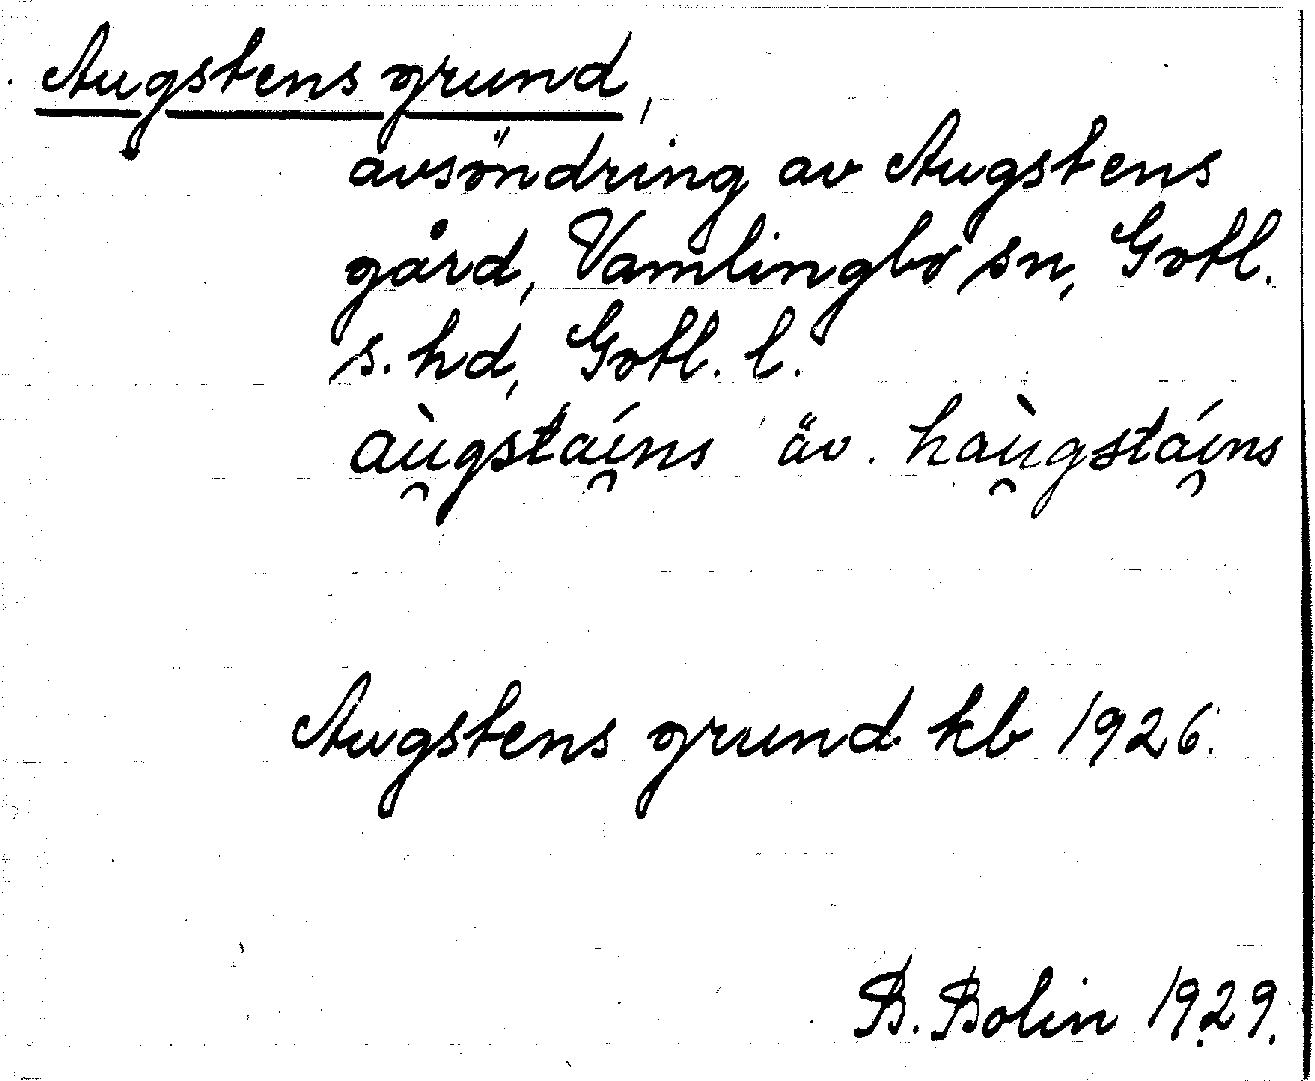 Augstens grund,
avsöndring av Augstens
gård, Vamlingbo sn, Gotl.
s. hd, Gotl. l.
aù̯gstaí̯ns äv. haù̯gstái̯ns
Augstens grund kb 1926.
B. Bolin 1929.